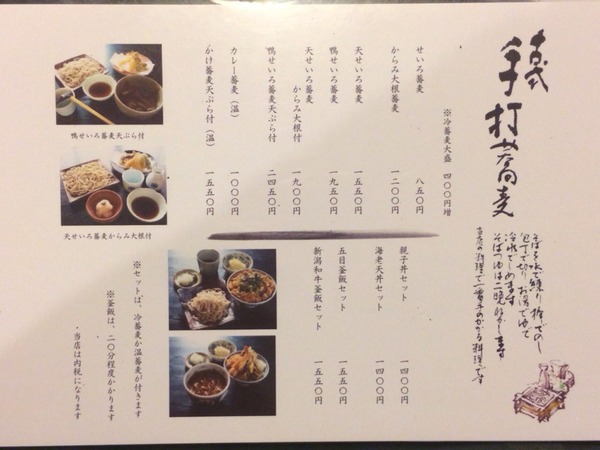 手打蕎麦
そばを水で練り棒でのし
包丁で切りお湯でゆで
冷水でしめます
そばつゆは二晩ねかします
当店の料理で一番手のかかる料理です
※冷蕎麦大盛 四〇〇円増
せいろ蕎麦 八五〇円
からみ大根蕎麦 一二〇〇円
天せいろ蕎麦 一五五〇円
鴨せいろ蕎麦 一九五〇円
天せいろ蕎麦
からみ大根付 一九〇〇円
鴨せいろ蕎麦天ぷら付 二四五〇円
カレー蕎麦(温) 一〇〇〇円
かけ蕎麦天ぷら付(温) 一五五〇円
鴨せいろ蕎麦天ぷら付
天せいろ蕎麦からみ大根付
親子丼セット 一四〇〇円
海老天丼セット 一四〇〇円
五目釜飯セット 一五五〇円
新潟和牛釜飯セット 一五五〇円
※セットは、冷蕎麦か温蕎麦が付きます
※釜飯は、二〇分程度かかります
・当店は内税になります